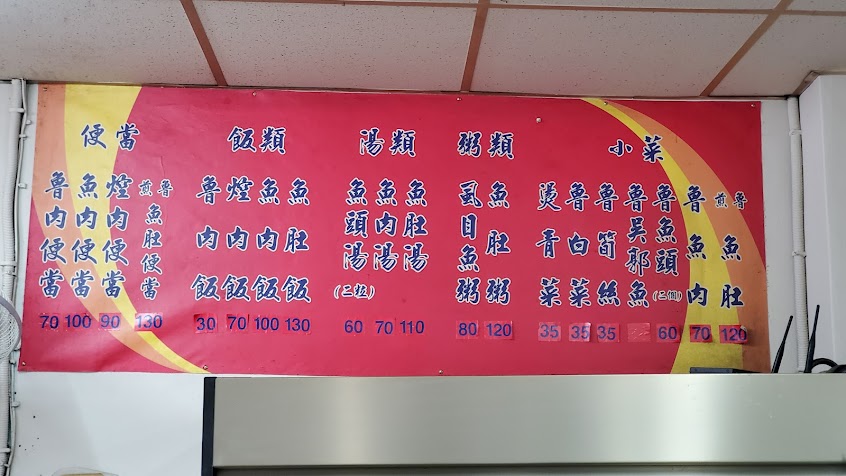 便當
魯肉便當 70
魚肉便當 100
焢肉便當 90
煎魯魚肚便當 130
飯類
魯肉飯 30
焢肉飯 70
魚肉飯 100
魚肚飯 130
湯類
魚頭湯(二粒) 60
魚肉湯 70
魚肚湯 110
粥類
虱目魚粥 80
魚肚粥 120
小菜
燙青菜 35
魯白菜 35
魯筍絲 35
魯吳郭魚
魯魚頭(二個) 60
魯魚肉 70
煎魯魚肚 120